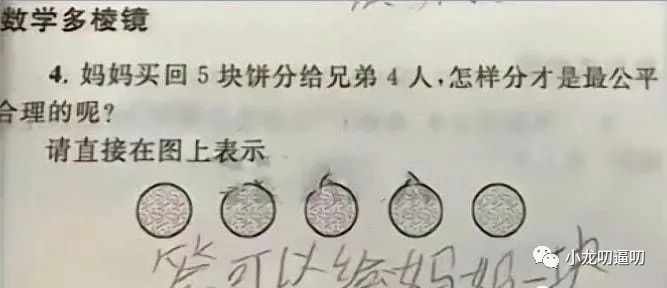 数学多棱镜
4. 妈妈买回 5 块饼分给兄弟 4 人,怎样分才是最公平
合理的呢?
请直接在图上表示
答可以给妈妈一块
小龙叨逼叨